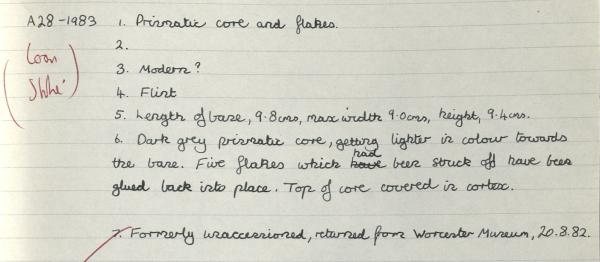 A28-1983 1. Prismatic core and flakes.
2.
(Loan
3. Modern?
4. Flint
5. Length of base, 9.8cms, max width 9.0cms, height, 9.4cms.
6. Dark grey prismatic core, getting lighter in colour towards
the base. Five flakes which have had been struck off have been
glued back into place. Top of core covered in cortex.
7. Formerly unaccessioned, returned from Worcester Museum, 20.8.82.